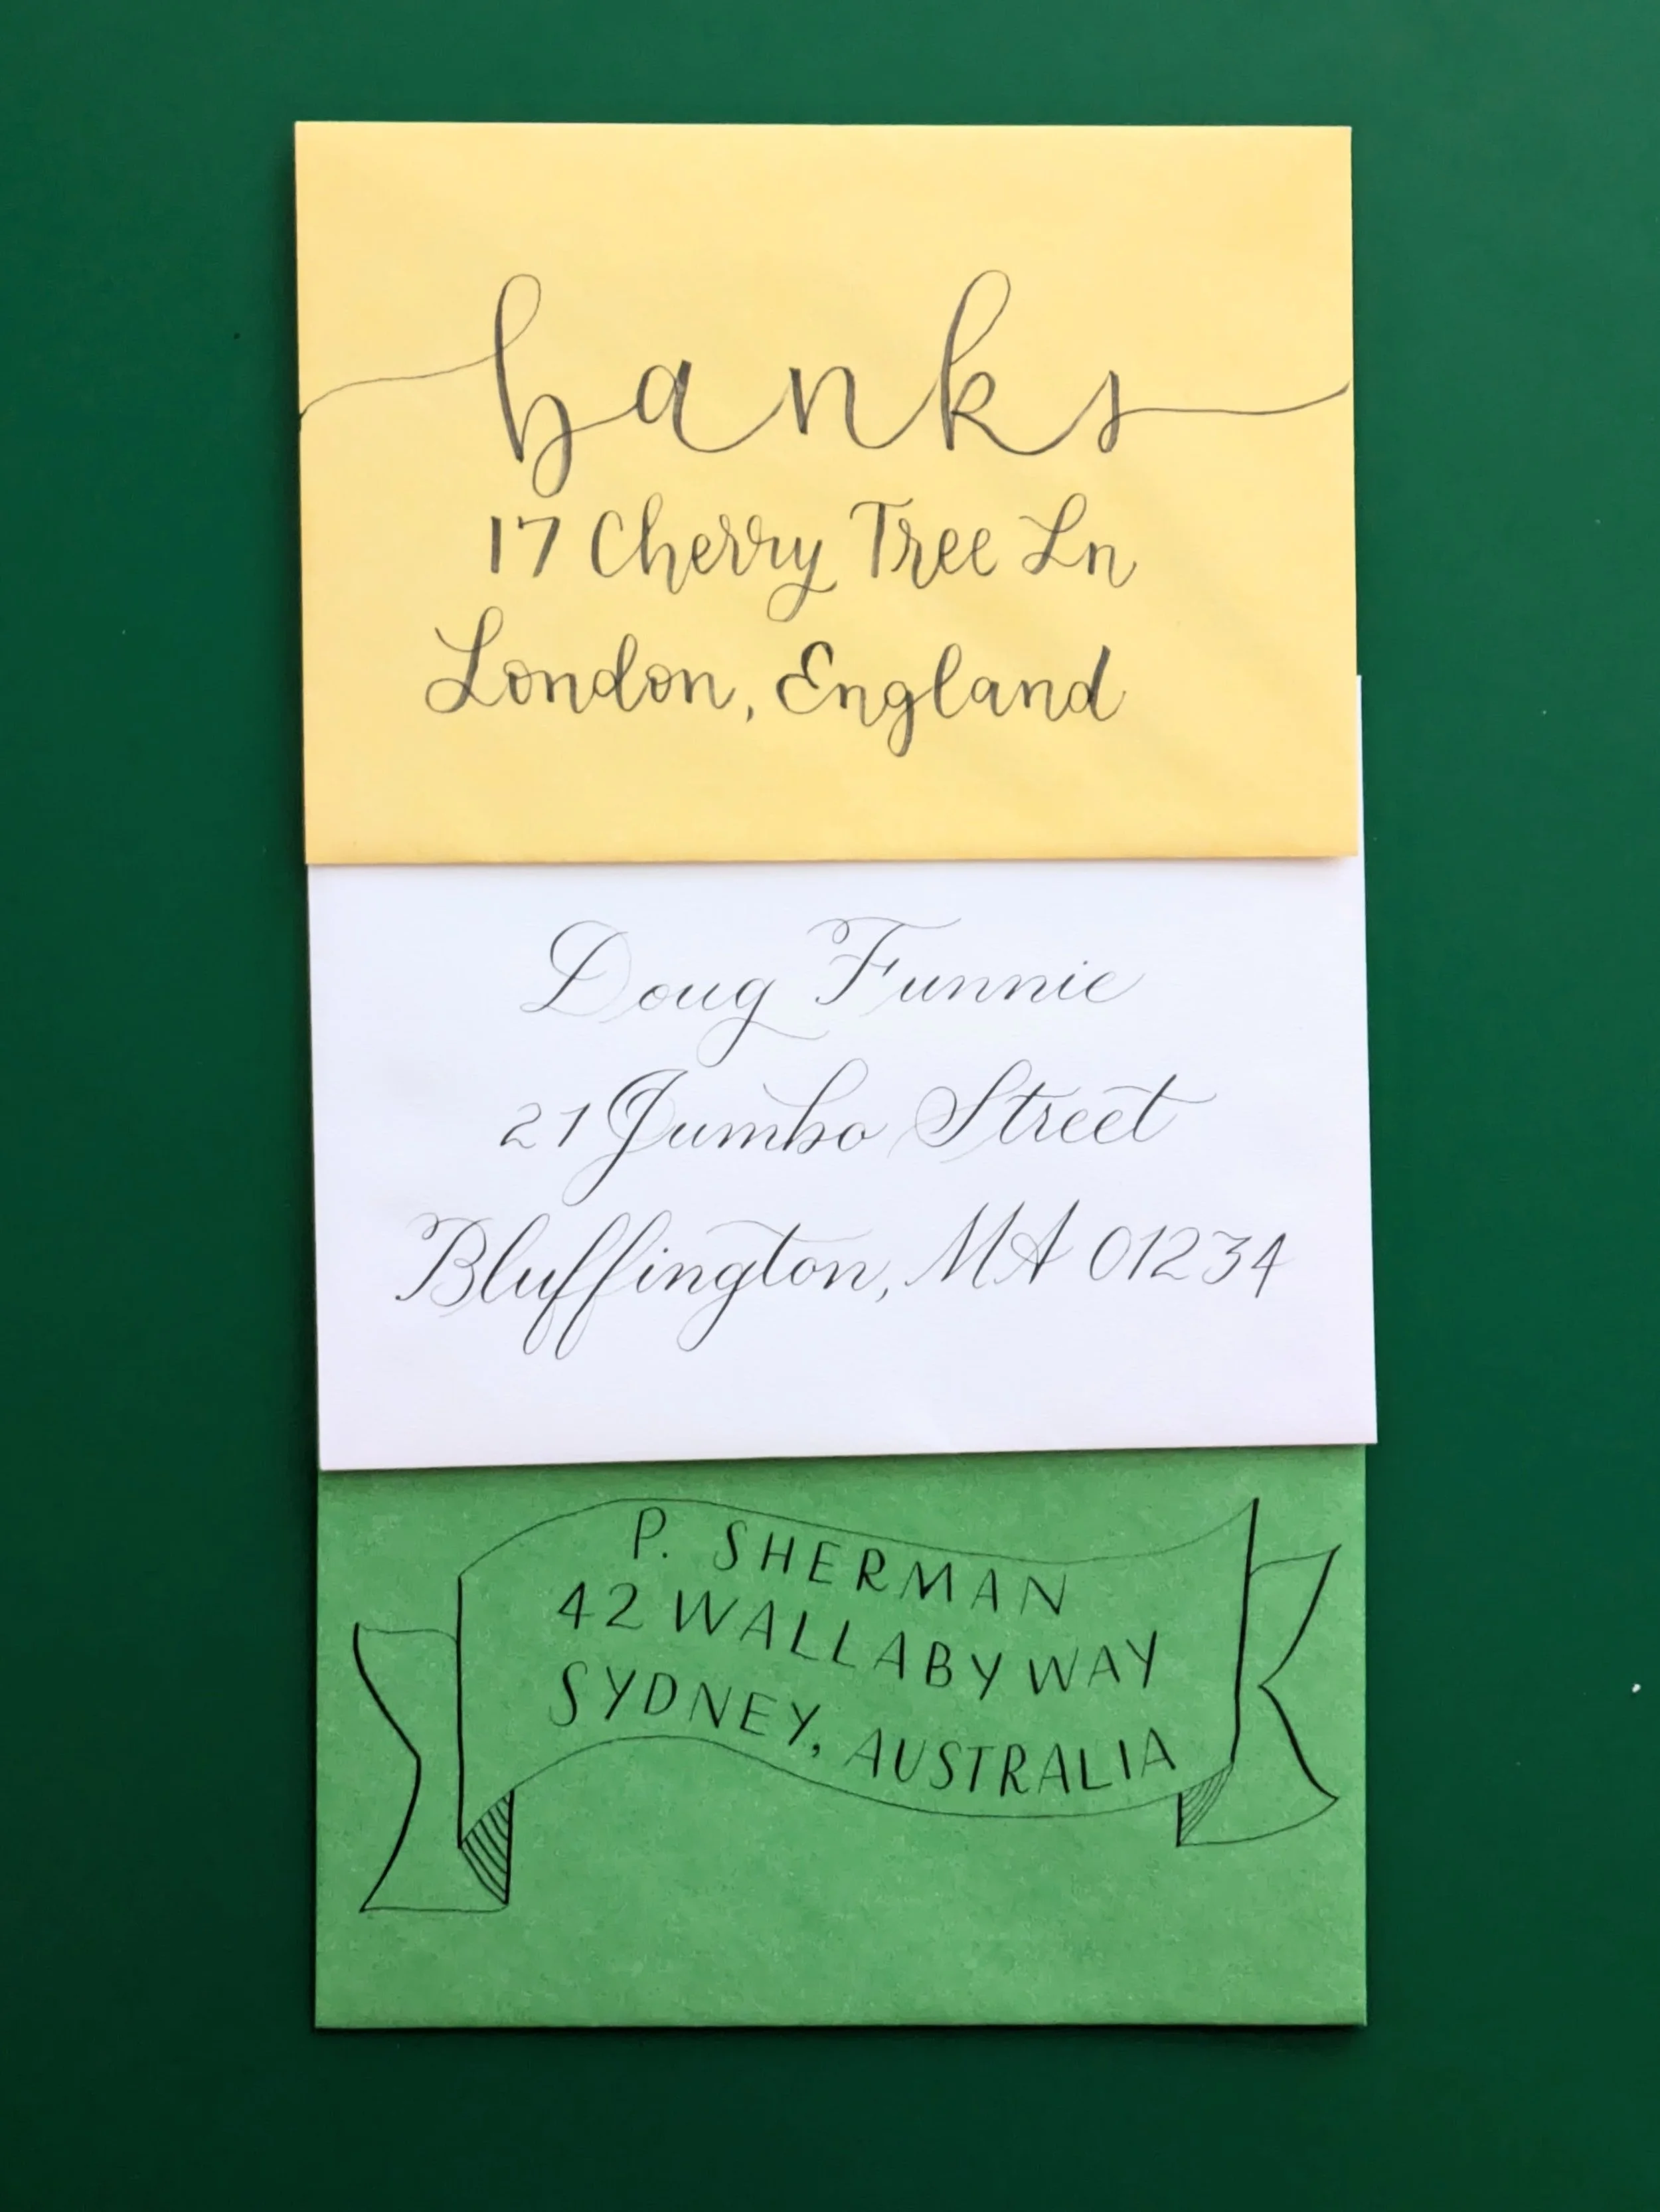 banks
17 Cherry Tree Ln
London, England
Doug Funnie
21 Jumbo Street
Bluffington, MA 01234
P. SHERMAN
42 WALLABY WAY
SYDNEY, AUSTRALIA